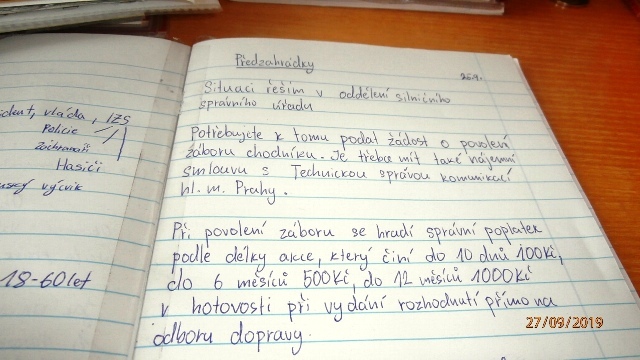 vláda, IZS
Policie
Hasiči
výcvik
18-60 let
Předzahrádky
Situaci řeším v oddělení silničního
správního úřadu
Potřebujete k tomu podat žádost o povolení
záboru chodníku. Je třeba mít také nájemní
smlouvu s Technickou správou komunikací
hl. m. Prahy.
Při povolení záboru se hradí správní poplatek
podle délky akce, který činí do 10 dnů 100Kč,
do 6 měsíců 500Kč, do 12 měsíců 1000Kč
v hotovosti při vydání rozhodnutí přímo na
odboru dopravy.
27/09/2019